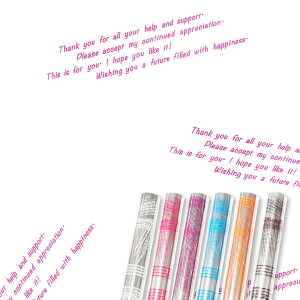 Thank you for all your help and support.
Please accept my continued appreciation.
This is for you. I hope you like it!
Wishing you a future filled with happiness.
Thank you for all your
Please accept my cont
This is for you. I hope you like
Wishing you a future
help and support.
continued appreciation.
hope you like it!
a future filled with happiness.